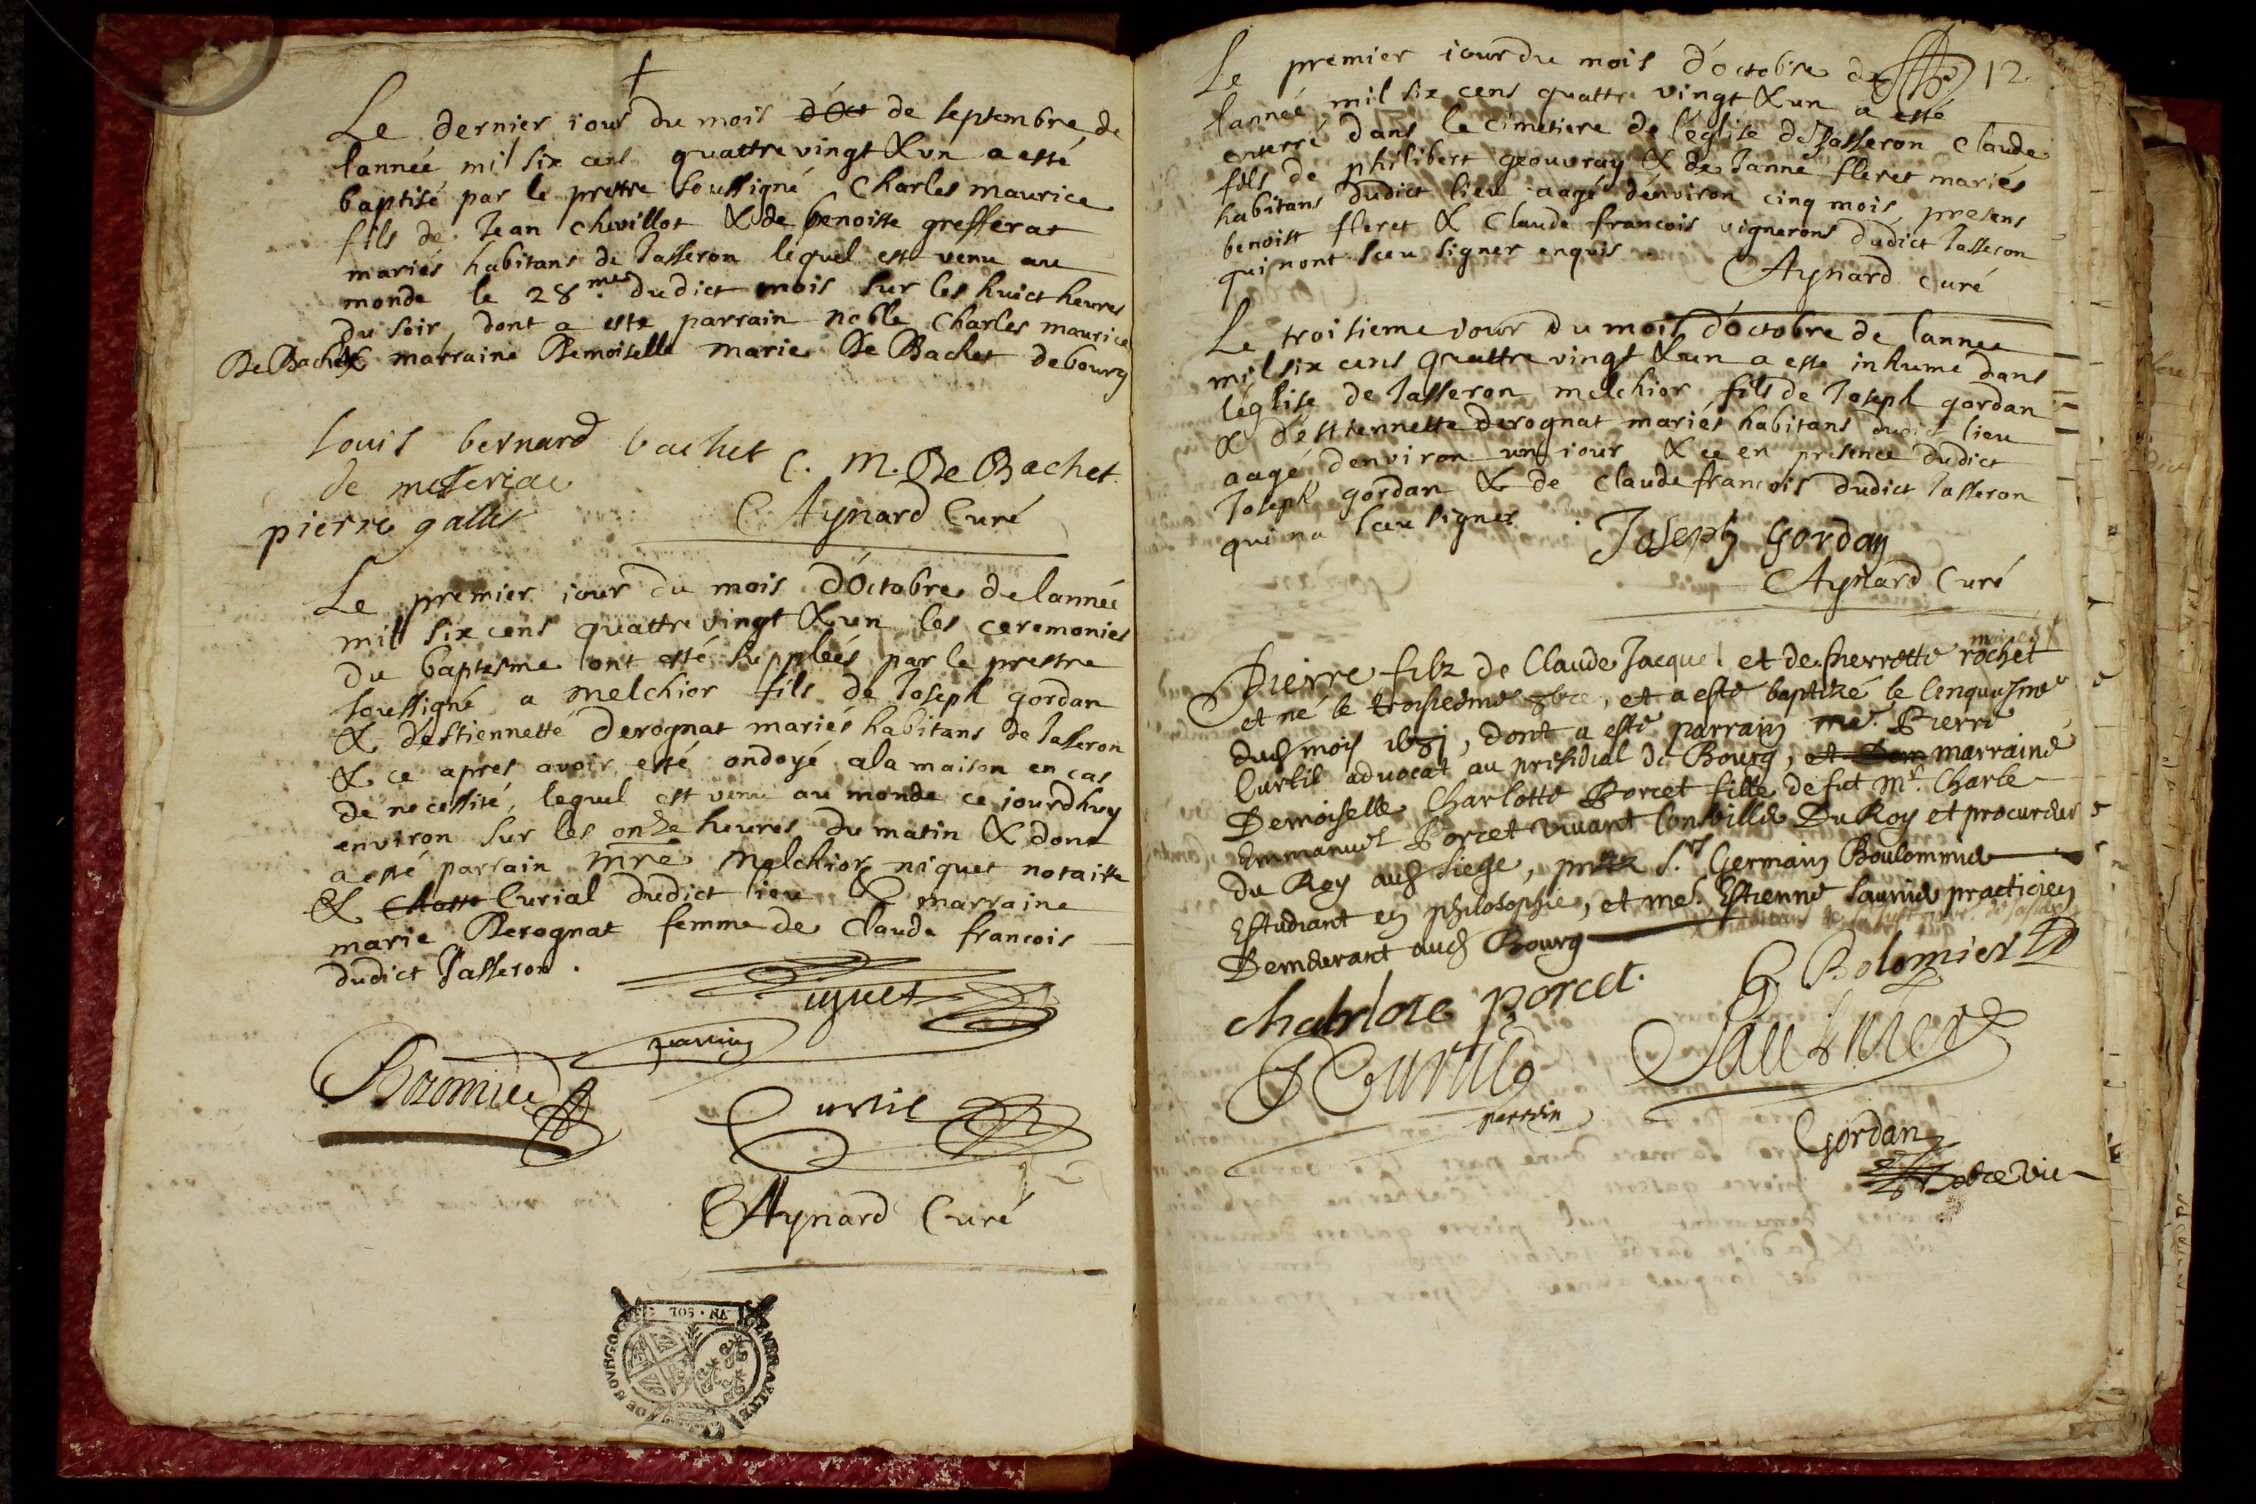 Le dernier iour du mois d'Oct de septembre de
lannée mil six cens quattre vingt & vn a esté
baptisé par le prestre soussigné Charles maurice
fils de Jean Chevillot & de benoiste grefferat
mariés habitans de Jasseron lequel est venu au
monde le 28.me dudict mois sur les huict heures
du soir, dont a este parrain noble Charles maurice
De Bachet & marraine Demoiselle marie De Bachet de bourg
louis bernard bachet C. M. De Bachet.
de meseriac
pierre gallet C. Aynard Curé
Le premier iour du mois d'Octobre de lannée
mil six cens quattre vingt & un les ceremonies
du baptesme ont esté suppléés par le prestre
soussigné a melchior fils de Joseph gordan
& d'éstiennette Derognat mariés habitans de Jasseron
& ce apres avoir esté ondoyé a la maison en cas
de necessité, lequel est venu au monde ce jourdhuy
environ sur les onze heures du matin & dont
a esté parrain mre melchior niquet notaire
& Curial dudict lieu & marraine
marie Derognat femme de Claude francois
dudict Jasseron.
Niquet
parrin
Curtil
C. Aynard Curé
GENERALITE DE BOVRGOGNE
Le premier iour du mois d'óctobre de 12.
lannée mil six cens quattre vingt & un a esté
enterré dans le cimetiere de l'église de Jasseron Claude
fils de philibert geouvray & de Janne fleret mariés
habitans dudict lieu aagé d'énviron cinq mois, presens
benoist fleret & Claude francois vignerons dudict Jasseron
qui nont sceu signer enquis
C. Aynard curé
Le troisieme iour du mois d'óctobre de lannee
mil six cens quattre vingt & un a este inhume dans
léglise de Jasseron melchior fils de Joseph gordan
& d'ésttiennette derognat mariés habitans dudict lieu
aagé denviron un iour & ce en presence dudict
Joseph gordan & de Claude francois dudict Jasseron
qui na sceu signer.
Joseph Gordan
C. Aynard Curé
Pierre filz de Claude Jacquet et de pierrette rochet
et né le troisiesme 8bre, et a esté baptizé le cinquiesme
dud mois 1681, dont a esté parrain me. Pierre
Curtil advocat au presidial de Bourg, et Dem marraine
Demoiselle Charlotte Porcet fille de fut Mr. Charle
Emmanuel Porcet vivant Conseiller Du Roy et procureur
du Roy aud siege, Sr Germain Boulommier
Estudiant en philosophie, et me. Estienne Saunier practicien
Demeurant aud Bourg
charlote porcet.
G. Bolomier
P Curtil
parrin
Saulnier
Gordan